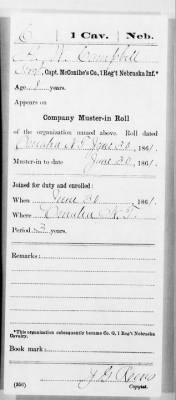 C | 1 Cav. | Neb.
Campbell
Capt. McConihe's Co., 1 Reg't Nebraska Inf.*
Age 18 years.
Appears on
Company Muster-in Roll
of the organization named above. Roll dated
Omaha N.T. June 30, 1861.
Muster-in to date June 30, 1861.
Joined for duty and enrolled:
When June 30, 1861.
Where Omaha N.T.
Period 3 years.
Remarks:
*This organization subsequently became Co. G, 1 Reg't Nebraska
Cavalry.
Book mark:
(356) Copyist.